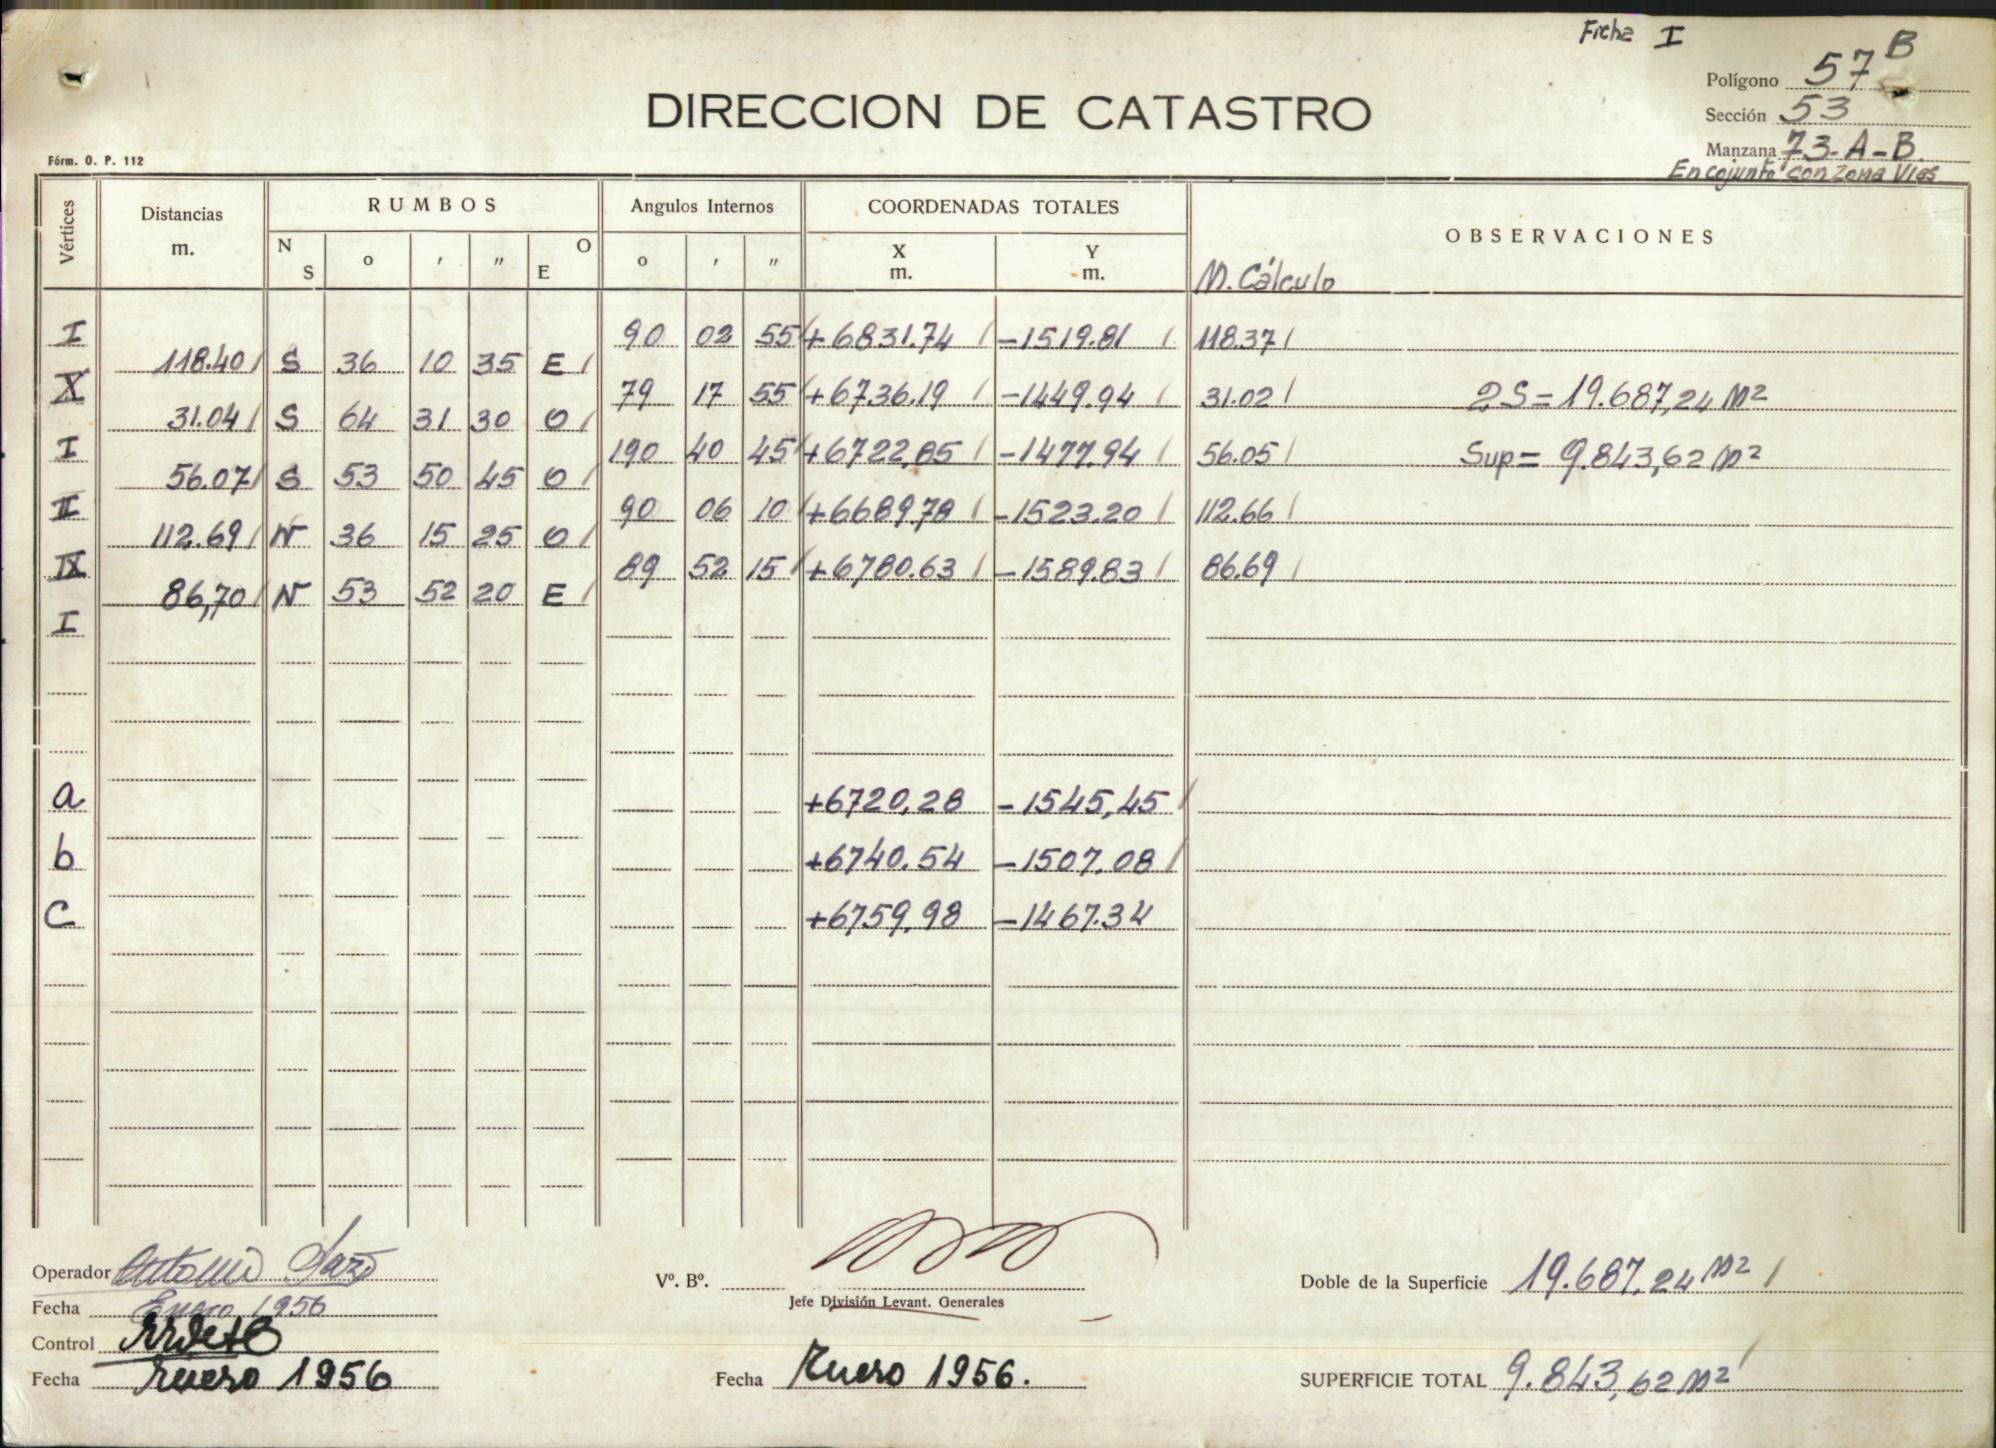 Ficha I
Polígono 57 B
DIRECCION DE CATASTRO
Sección 53
Fórm. O. P. 112
Manzana 73-A-B
En cojunto con Zona Vias
Vértices Distancias m. RUMBOS N S o ' " O E Angulos Internos o ' " COORDENADAS TOTALES X m. Y m. OBSERVACIONES
M. Cálculo
I 90 02 55 +6831.74 -1519.81 118.37
118.40 S 36 10 35 E
X 79 17 55 +6736.19 -1449.94 31.02 2S = 19.687,24 M2
31.04 S 64 31 30 O
I 190 40 45 +6722,85 -1477.94 56.05 Sup = 9.843,62 M2
56.07 S 53 50 45 O
II 90 06 10 +6689.78 -1523.20 112.66
112.69 N 36 15 25 O
IX 89 52 15 +6780.63 -1589.83 86.69
86,70 N 53 52 20 E
I
a +6720,28 -1545,45
b +6740.54 -1507.08
c +6759,98 -1467.34
Operador Antonio
Vº. Bº.
Doble de la Superficie 19.687,24 M2
Fecha Enero 1956
Jefe División Levant. Generales
Control
Fecha Enero 1956
Fecha Enero 1956.
SUPERFICIE TOTAL 9.843,62 M2